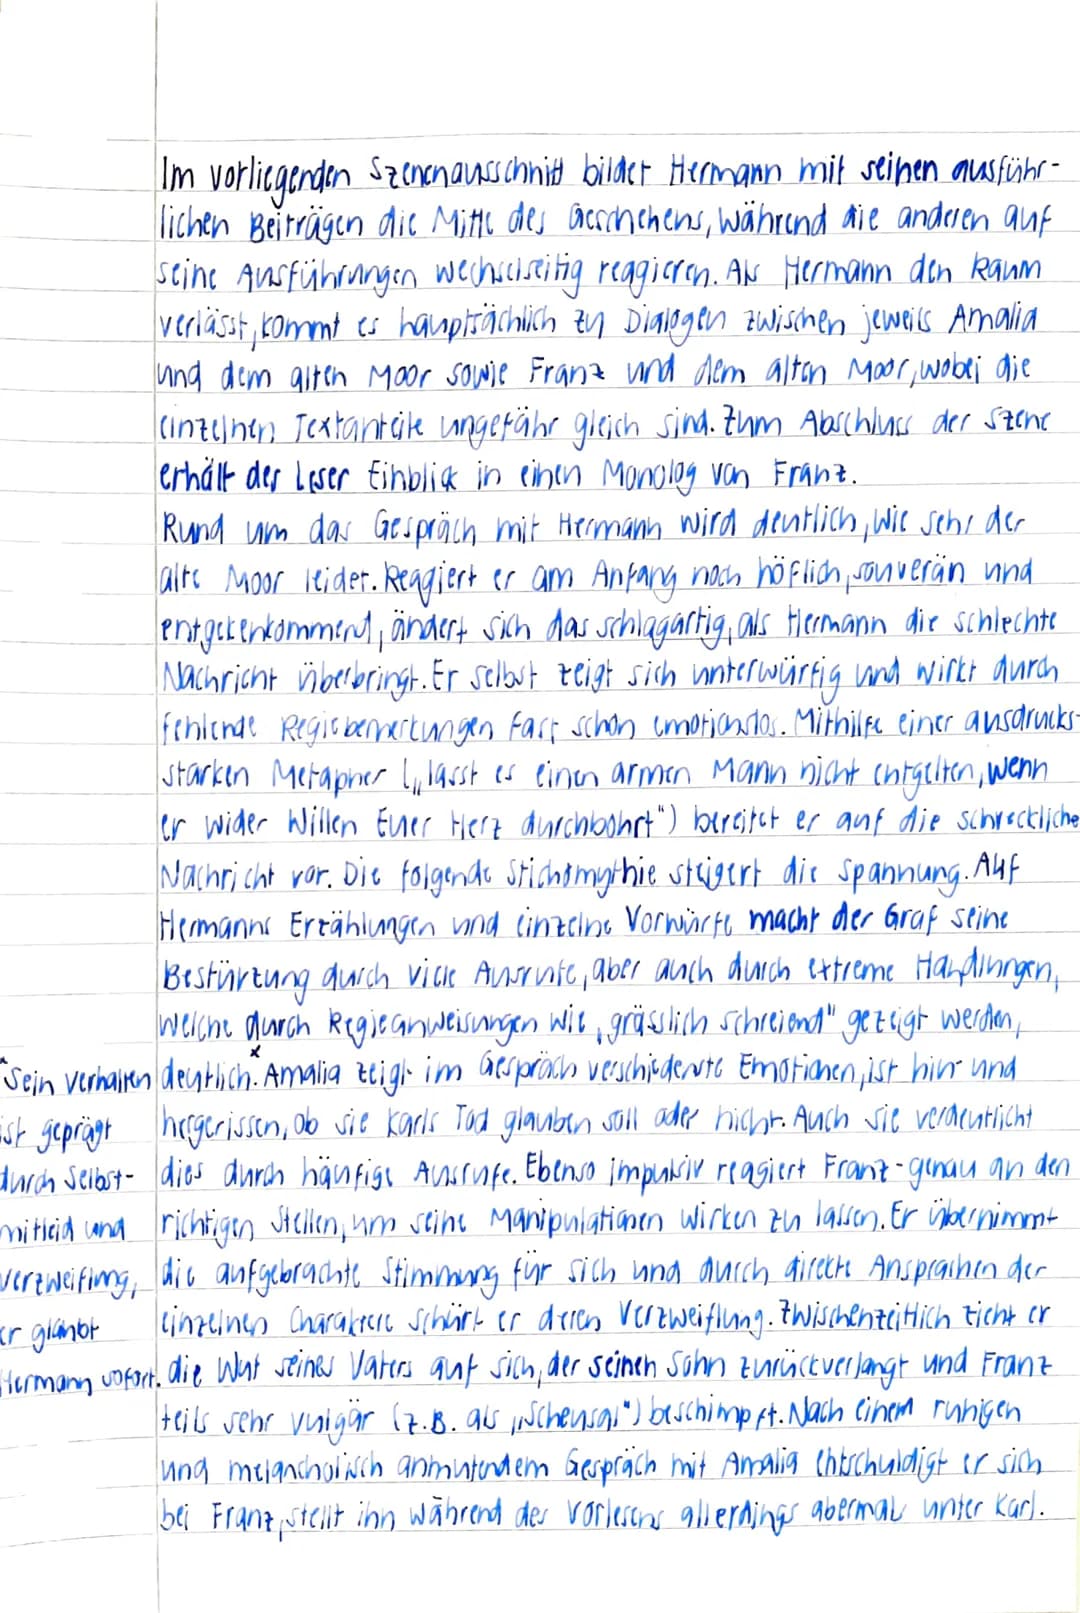 Im vorliegenden Szenenausschnitt bildet Hermann mit seinen ausführ-
lichen Beiträgen die Mitte des Geschehens, während die anderen auf
seine Ausführungen wechselseitig reagieren. Als Hermann den Raum
verlässt, kommt es hauptsächlich zu Dialogen zwischen jeweils Amalia
und dem alten Moor sowie Franz und dem alten Moor, wobei die
einzelnen Textanteile ungefähr gleich sind. Zum Abschluss der Szene
erhält der Leser Einblick in einen Monolog von Franz.
Rund um das Gespräch mit Hermann wird deutlich, wie sehr der
alte Moor leidet. Reagiert er am Anfang noch höflich, souverän und
entgekenkommend, ändert sich das schlagartig, als Hermann die schlechte
Nachricht überbringt. Er selbst zeigt sich unterwürfig und wirkt durch
fehlende Regiebemerkungen fast schon emotionslos. Mithilfe einer ausdrucks-
starken Metapher („lasst es einen armen Mann nicht entgelten, wenn
er wider Willen Euer Herz durchbohrt") bereitet er auf die schreckliche
Nachricht vor. Die folgende Stichomythie steigert die Spannung. Auf
Hermanns Erzählungen und einzelne Vorwürfe macht der Graf seine
Bestürzung durch viele Ausrufe, aber auch durch extreme Handlungen,
welche durch Regieanweisungen wie „grässlich schreiend" gezeigt werden,
deutlich.ˣ Amalia zeigt im Gespräch verschiedenste Emotionen, ist hin- und
hergerissen, ob sie Karls Tod glauben soll oder nicht. Auch sie verdeutlicht
dies durch häufige Ausrufe. Ebenso impulsiv reagiert Franz - genau an den
richtigen Stellen, um seine Manipulationen wirken zu lassen. Er übernimmt
die aufgebrachte Stimmung für sich und durch direkte Ansprachen der
einzelnen Charaktere schürt er deren Verzweiflung. Zwischenzeitlich zieht er
die Wut seines Vaters auf sich, der seinen Sohn zurückverlangt und Franz
teils sehr vulgär (z.B. als „Scheusal") beschimpft. Nach einem ruhigen
und melancholisch anmutendem Gespräch mit Amalia entschuldigt er sich
bei Franz, stellt ihn während des Vorlesens allerdings abermals unter Karl.
ˣSein Verhalten
ist geprägt
durch Selbst-
mitleid und
Verzweiflung,
er glaubt
Hermann sofort.